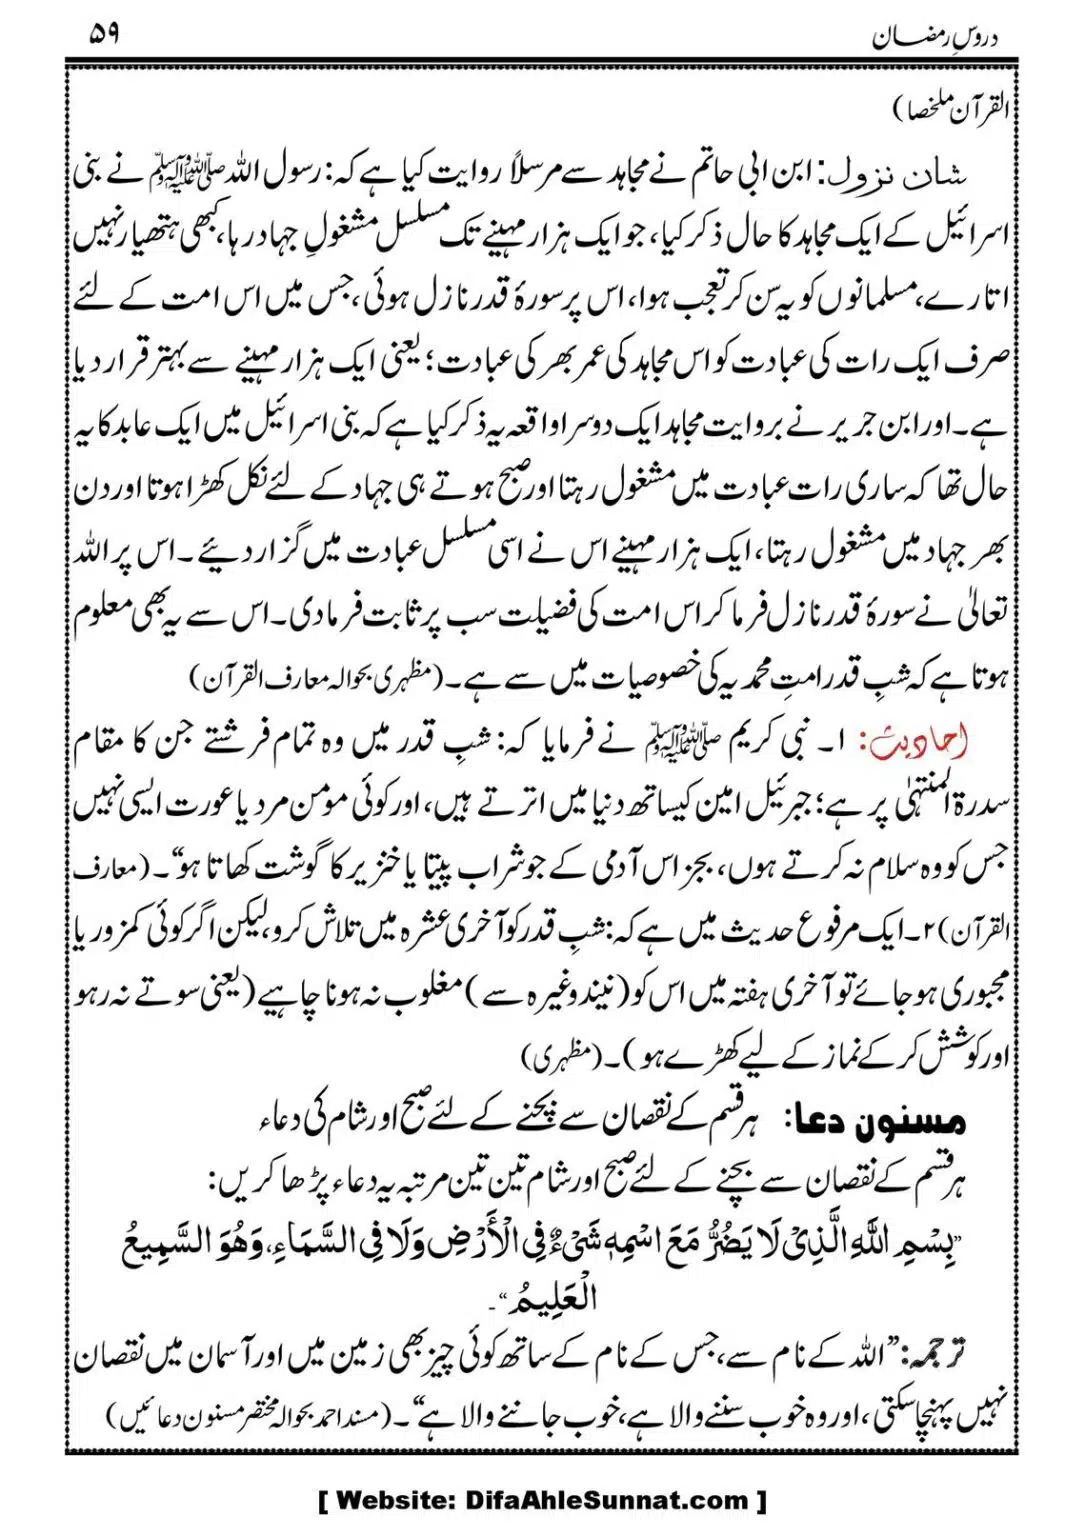 دروسِ رمضان ۵۹
القرآن ملخصا)
شان نزول: ابن ابی حاتم نے مجاہد سے مرسلاً روایت کیا ہے کہ: رسول اللہ ﷺ نے بنی
اسرائیل کے ایک مجاہد کا حال ذکر کیا، جو ایک ہزار مہینے تک مسلسل مشغولِ جہاد رہا، کبھی ہتھیار نہیں
اتارے، مسلمانوں کو یہ سن کر تعجب ہوا، اس پر سورۂ قدر نازل ہوئی، جس میں اس امت کے لئے
صرف ایک رات کی عبادت کو اس مجاہد کی عمر بھر کی عبادت؛ یعنی ایک ہزار مہینے سے بہتر قرار دیا
ہے۔ اور ابن جریر نے بروایت مجاہد ایک دوسرا واقعہ یہ ذکر کیا ہے کہ بنی اسرائیل میں ایک عابد کا یہ
حال تھا کہ ساری رات عبادت میں مشغول رہتا اور صبح ہوتے ہی جہاد کے لئے نکل کھڑا ہوتا اور دن
بھر جہاد میں مشغول رہتا، ایک ہزار مہینے اس نے اسی مسلسل عبادت میں گزار دئیے۔ اس پر اللہ
تعالیٰ نے سورۂ قدر نازل فرما کر اس امت کی فضیلت سب پر ثابت فرما دی۔ اس سے یہ بھی معلوم
ہوتا ہے کہ شبِ قدر امتِ محمدیہ کی خصوصیات میں سے ہے۔ (مظہری بحوالہ معارف القرآن)
احادیث: ۱۔ نبی کریم ﷺ نے فرمایا کہ: شبِ قدر میں وہ تمام فرشتے جن کا مقام
سدرۃ المنتہیٰ پر ہے؛ جبرئیل امین کیساتھ دنیا میں اترتے ہیں، اور کوئی مومن مرد یا عورت ایسی نہیں
جس کو وہ سلام نہ کرتے ہوں، بجز اس آدمی کے جو شراب پیتا یا خنزیر کا گوشت کھاتا ہو“۔ (معارف
القرآن) ۲۔ ایک مرفوع حدیث میں ہے کہ: شبِ قدر کو آخری عشرہ میں تلاش کرو، لیکن اگر کوئی کمزور یا
مجبوری ہو جائے تو آخری ہفتہ میں اس کو (نیند وغیرہ سے) مغلوب نہ ہونا چاہیے (یعنی سوتے نہ رہو
اور کوشش کر کے نماز کے لیے کھڑے ہو)۔ (مظہری)
مسنون دعا: ہر قسم کے نقصان سے بچنے کے لئے صبح اور شام کی دعاء
ہر قسم کے نقصان سے بچنے کے لئے صبح اور شام تین تین مرتبہ یہ دعاء پڑھا کریں:
”بِسْمِ اللَّهِ الَّذِیْ لَا يَضُرُّ مَعَ اسْمِهٖ شَیْءٌ فِی الْأَرْضِ وَلَا فِی السَّمَاءِ، وَهُوَ السَّمِيعُ
الْعَلِيمُ“۔
ترجمہ: ”اللہ کے نام سے، جس کے نام کے ساتھ کوئی چیز بھی زمین میں اور آسمان میں نقصان
نہیں پہنچا سکتی، اور وہ خوب سننے والا ہے، خوب جاننے والا ہے“۔ (مسند احمد بحوالہ مختصر مسنون دعائیں)
[ Website: DifaAhleSunnat.com ]